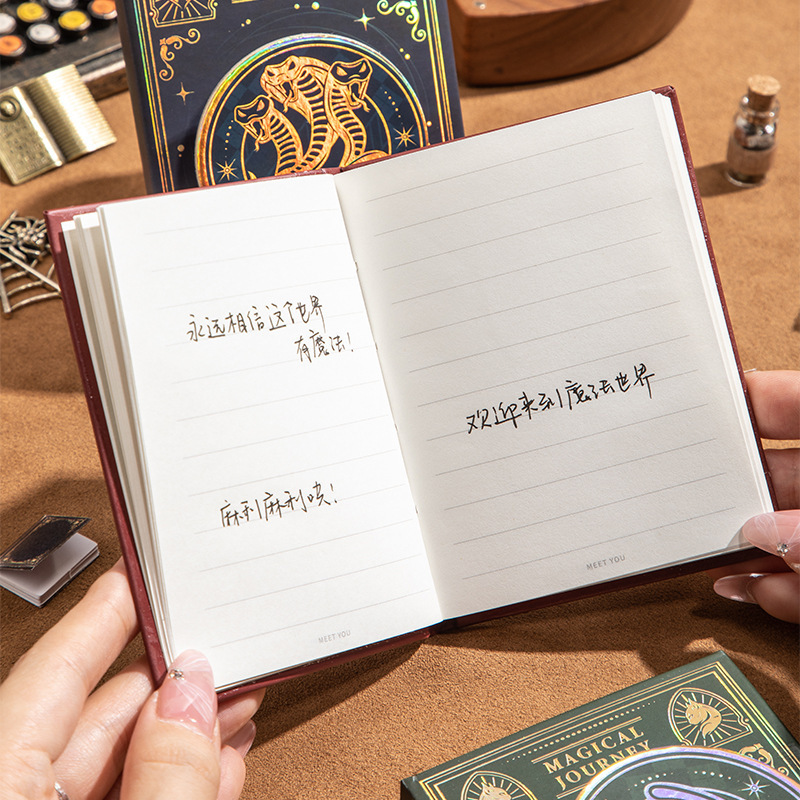 永远相信这个世界
有魔法!
麻利麻利哄!
MEET YOU
欢迎来到魔法世界
MEET YOU
MAGICAL
JOURNEY